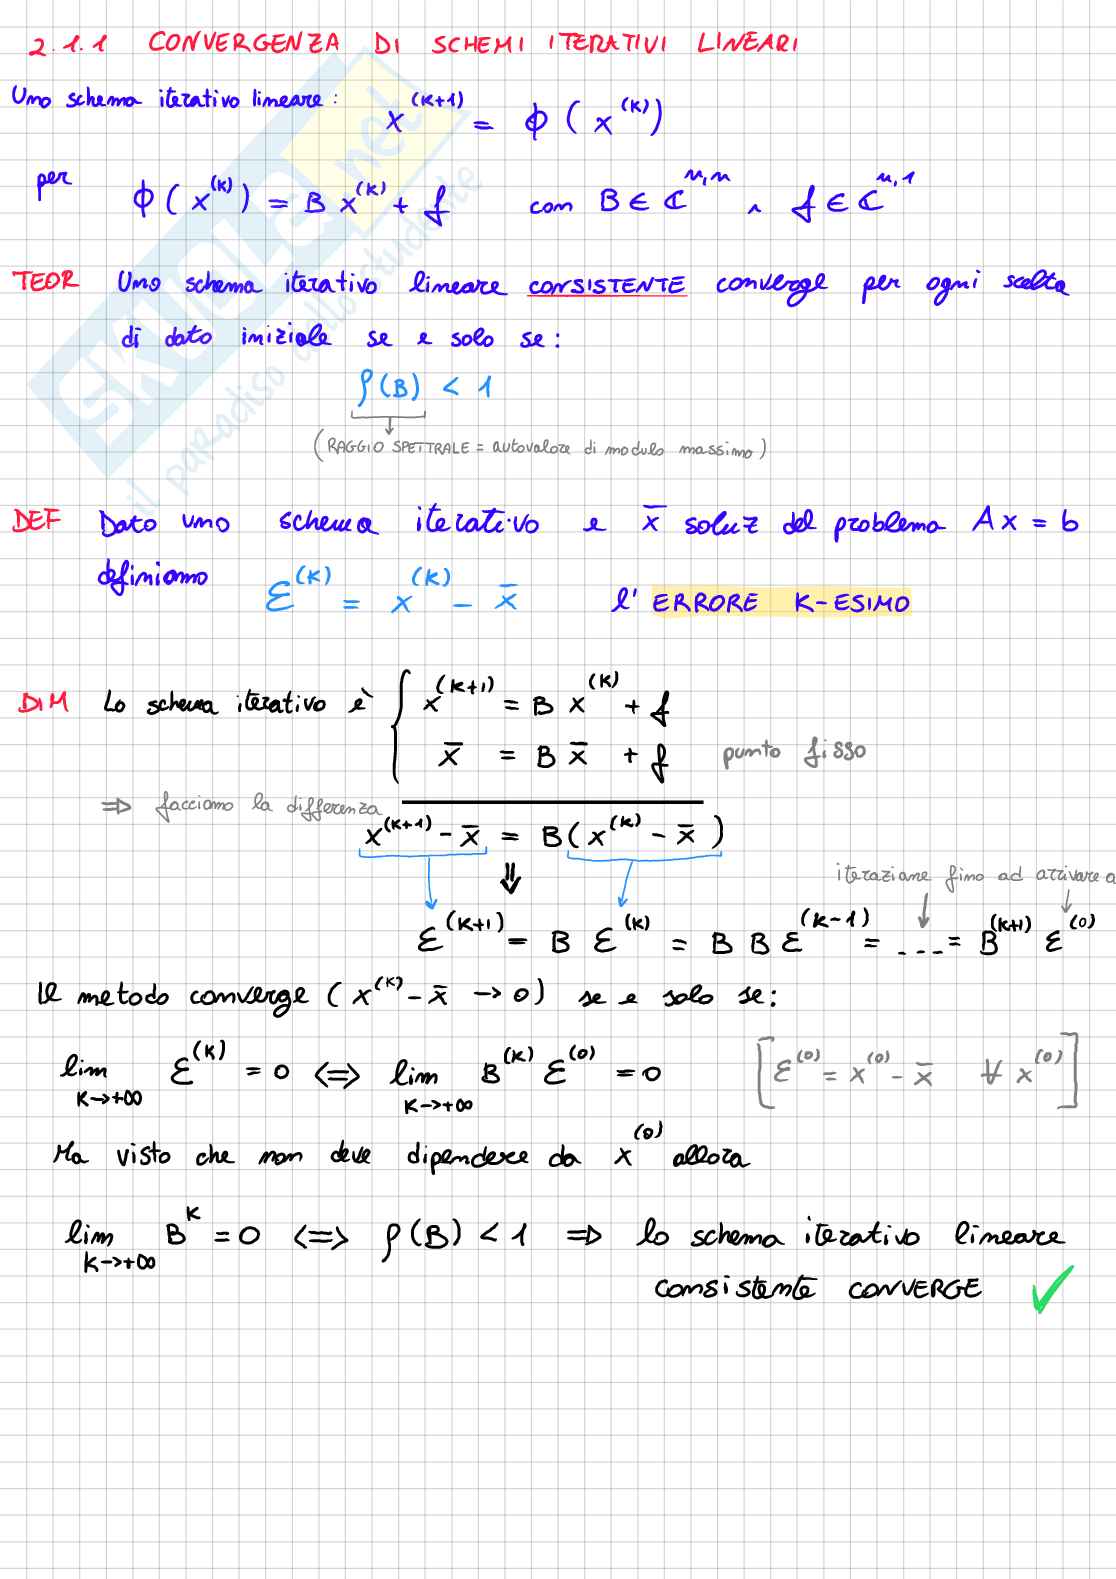 2.1.1 CONVERGENZA DI SCHEMI ITERATIVI LINEARI
Uno schema iterativo lineare: x^(k+1) = ϕ(x^(k))
per ϕ(x^(k)) = B x^(k) + f con B ∈ ℂ^n,n ∧ f ∈ ℂ^n,1
TEOR Uno schema iterativo lineare CONSISTENTE converge per ogni scelta
di dato iniziale se e solo se:
ρ(B) < 1
(RAGGIO SPETTRALE = autovalore di modulo massimo)
DEF Dato uno schema iterativo e x̄ soluz del problema Ax = b
definiamo ε^(k) = x^(k) - x̄ l' ERRORE K-ESIMO
DIM Lo schema iterativo è { x^(k+1) = B x^(k) + f
x̄ = B x̄ + f punto fisso
⇒ facciamo la differenza
x^(k+1) - x̄ = B(x^(k) - x̄)
⇓ iterazione fino ad arrivare a
ε^(k+1) = B ε^(k) = B B ε^(k-1) = ... = B^(k+1) ε^(0)
Il metodo converge (x^(k) - x̄ → 0) se e solo se:
lim k→+∞ ε^(k) = 0 ⟺ lim k→+∞ B^(k) ε^(0) = 0 [ε^(0) = x^(0) - x̄ ∀ x^(0)]
Ma visto che non deve dipendere da x^(0) allora
lim k→+∞ B^k = 0 ⟺ ρ(B) < 1 ⇒ lo schema iterativo lineare
consistente CONVERGE ✓
SKUOLA.net
il paradiso dello studente